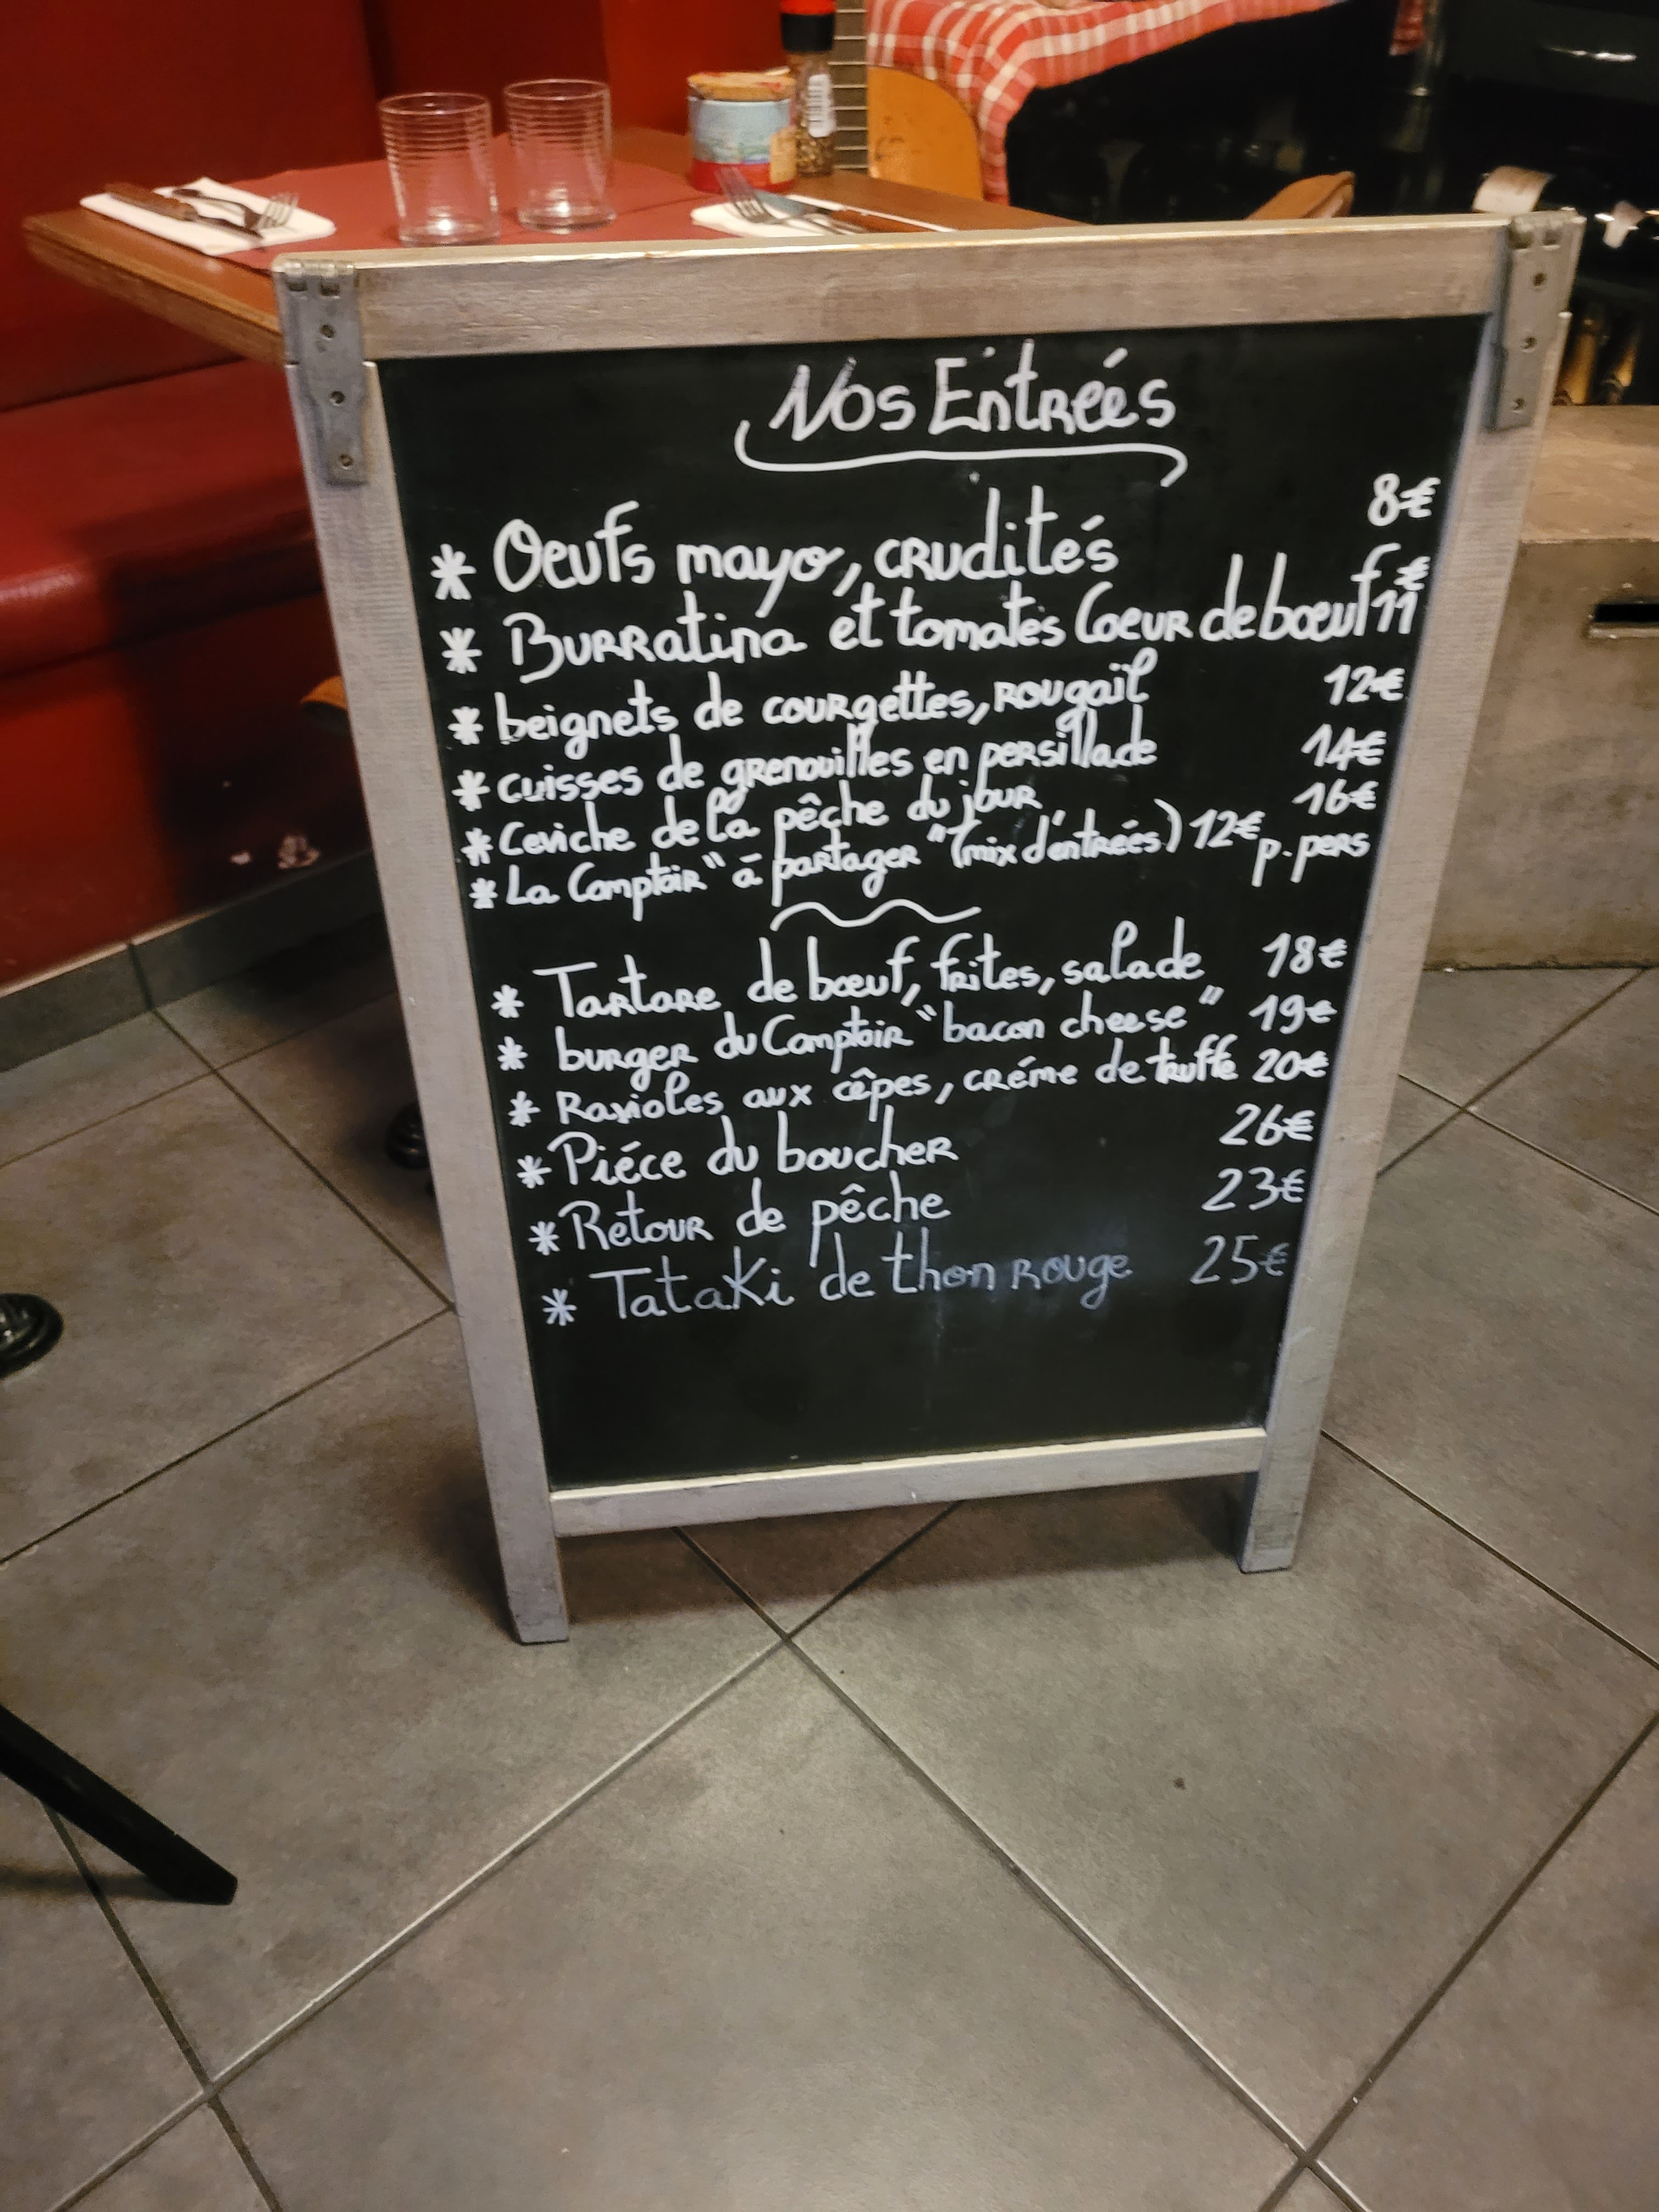 Nos Entrées
* Oeufs mayo, crudités 8€
* Burratina et tomates Coeur de bœuf 11€
* beignets de courgettes, rougaïl 12€
* cuisses de grenouilles en persillade 14€
* Ceviche de la pêche du jour 16€
* La Comptoir "à partager" (mix d'entrées) 12€ p.pers
* Tartare de bœuf, frites, salade 18€
* burger du Comptoir "bacon cheese" 19€
* Ravioles aux cêpes, créme de truffe 20€
* Piéce du boucher 26€
* Retour de pêche 23€
* Tataki de thon rouge 25€